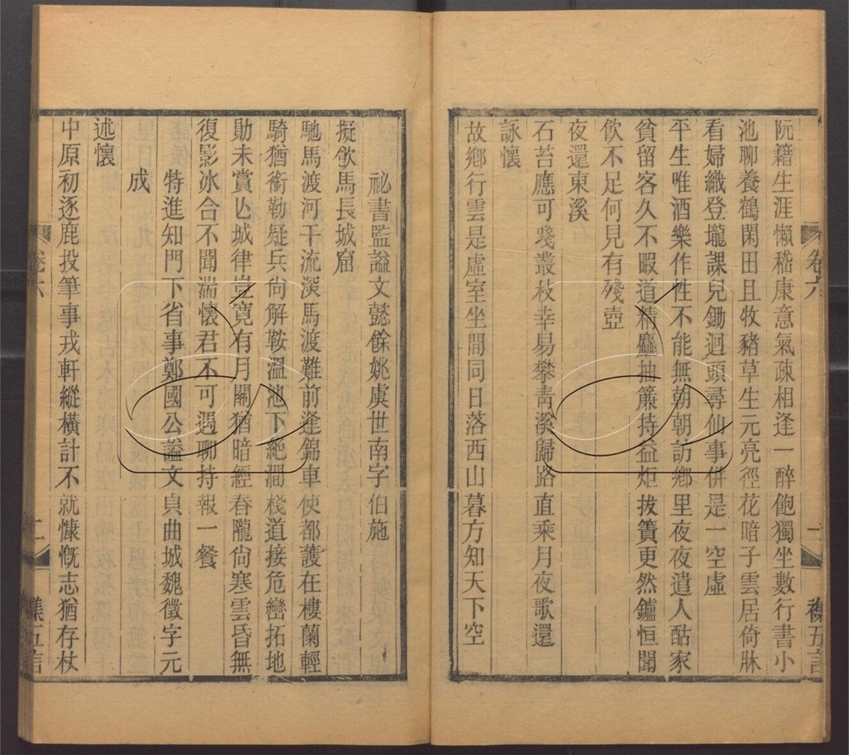 卷六
一
襍五言
阮籍生涯懶嵇康意氣疎相逢一醉飽獨坐數行書小
池聊養鶴閑田且牧豬草生元亮徑花暗子雲居倚牀
看婦織登壠課兒鋤迴頭尋仙事併是一空虛
平生唯酒樂作性不能無朝朝訪鄉里夜夜遣人酤家
貧留客久不暇道精麤抽簾持益炬拔簀更然鑪恒聞
飲不足何見有殘壺
夜還東溪
石苔應可踐叢枝幸易攀青溪歸路直乘月夜歌還
詠懷
故鄉行雲是虛室坐間同日落西山暮方知天下空
祕書監謚文懿餘姚虞世南字伯施
擬飲馬長城窟
馳馬渡河干流深馬渡難前逢錦車使都護在樓蘭輕
騎猶銜勒疑兵尙解鞍溫池下絕澗棧道接危巒拓地
勛未賞亾城律豈寛有月關猶暗經春隴尙寒雲昏無
復影冰合不聞湍懷君不可遇聊持報一餐
特進知門下省事鄭國公謚文貞曲城魏徵字元
成
述懷
中原初逐鹿投筆事戎軒縱橫計不就慷慨志猶存杖
卷六
二
襍五言